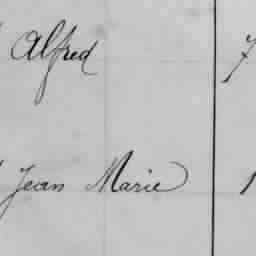 Alfred 7
Jean Marie 1